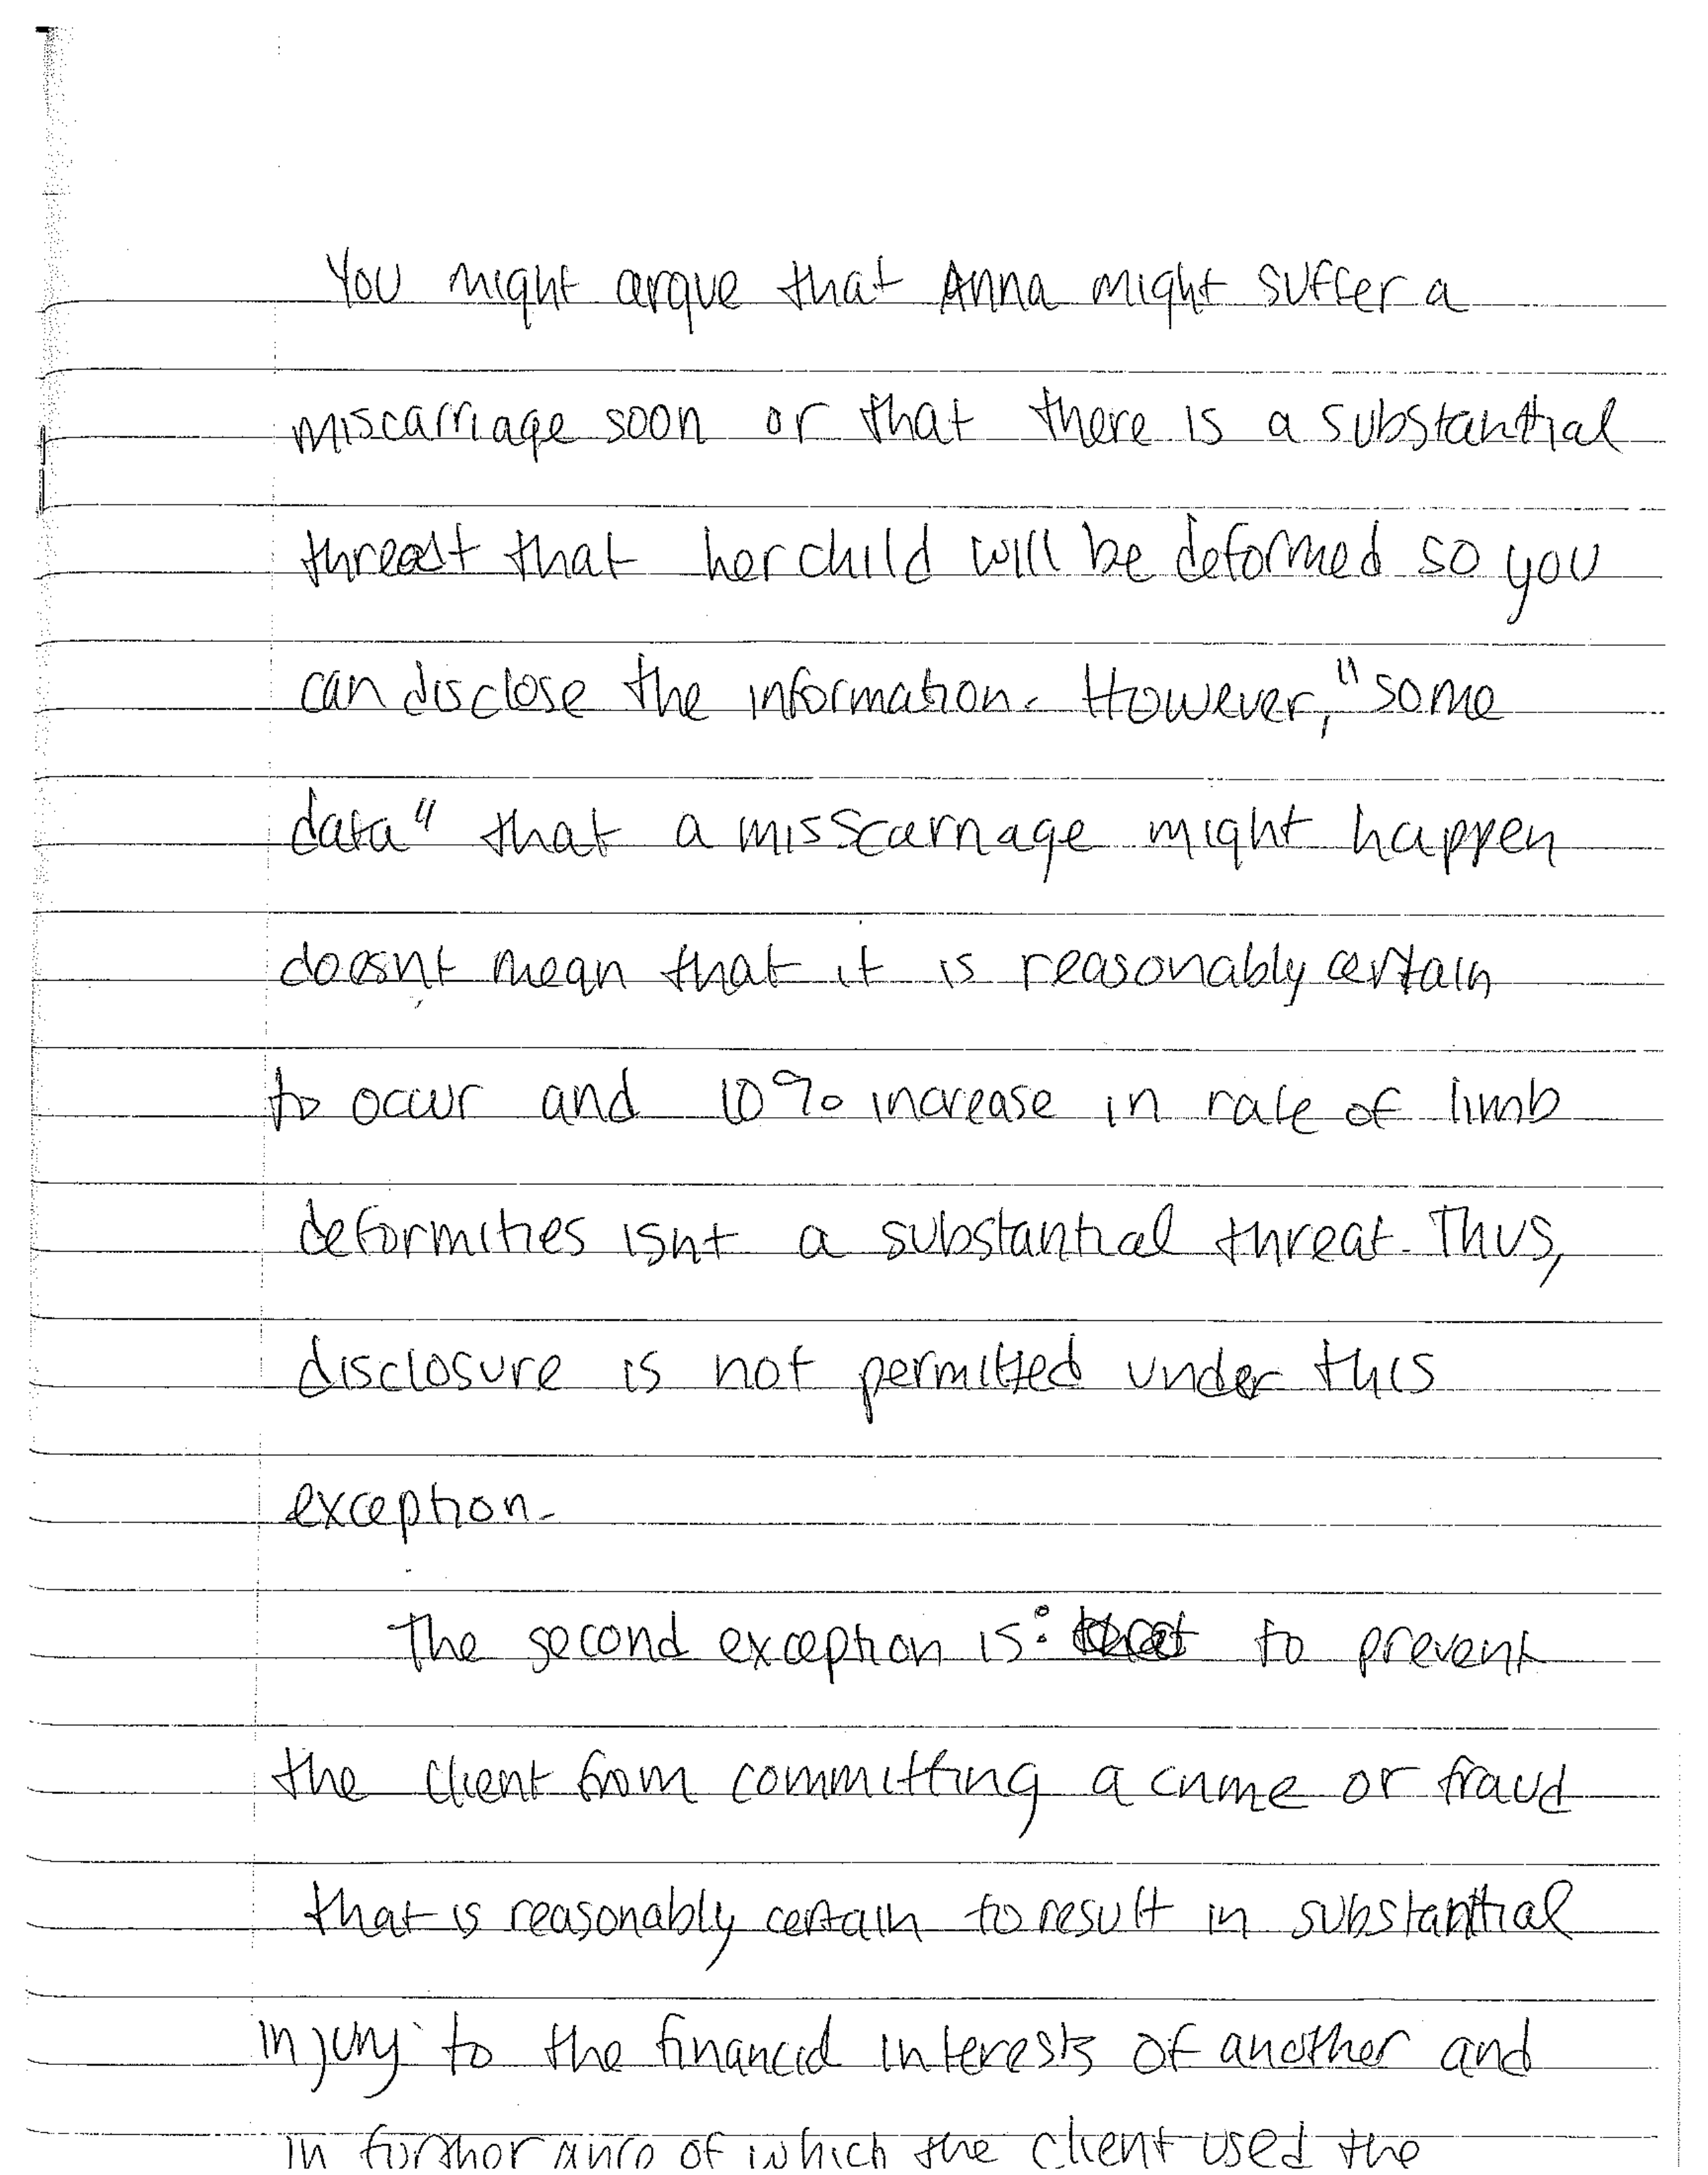 You might argue that Anna might suffer a
miscarriage soon or that there is a substantial
threat that her child will be deformed so you
can disclose the information. However, "some
data" that a misscarriage might happen
doesnt mean that it is reasonably certain
to occur and 10% increase in rate of limb
deformities isnt a substantial threat. Thus,
disclosure is not permitted under this
exception.
The second exception is: to prevent
the client from committing a crime or fraud
that is reasonably certain to result in substantial
injury to the financial interests of another and
in furtherance of which the client used the